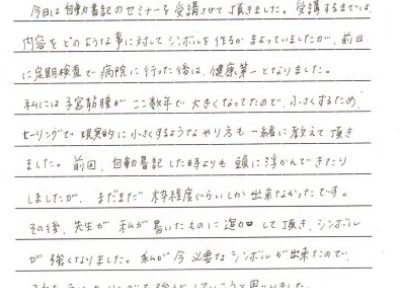 今日は自動書記のセミナーを受講させて頂きました。受講するまでは、
内容をどのような事に対してシンボルを作るかまよっていましたが、前日
に定期検査で病院に行った後は、健康第一となりました。
私には子宮筋腫がここ数年で大きくなってたので、小さくするため、
ヒーリングで現実的に小さくするようなやり方も一緒に教えて頂き
ました。前回、自動書記した時よりも頭に浮かんできたり
しましたが、まだまだ枠程度ぐらいしか出来なかったです。
その後、先生が私が書いたものに追加して頂き、シンボル
が強くなりました。私が今必要なシンボルが出来たので、